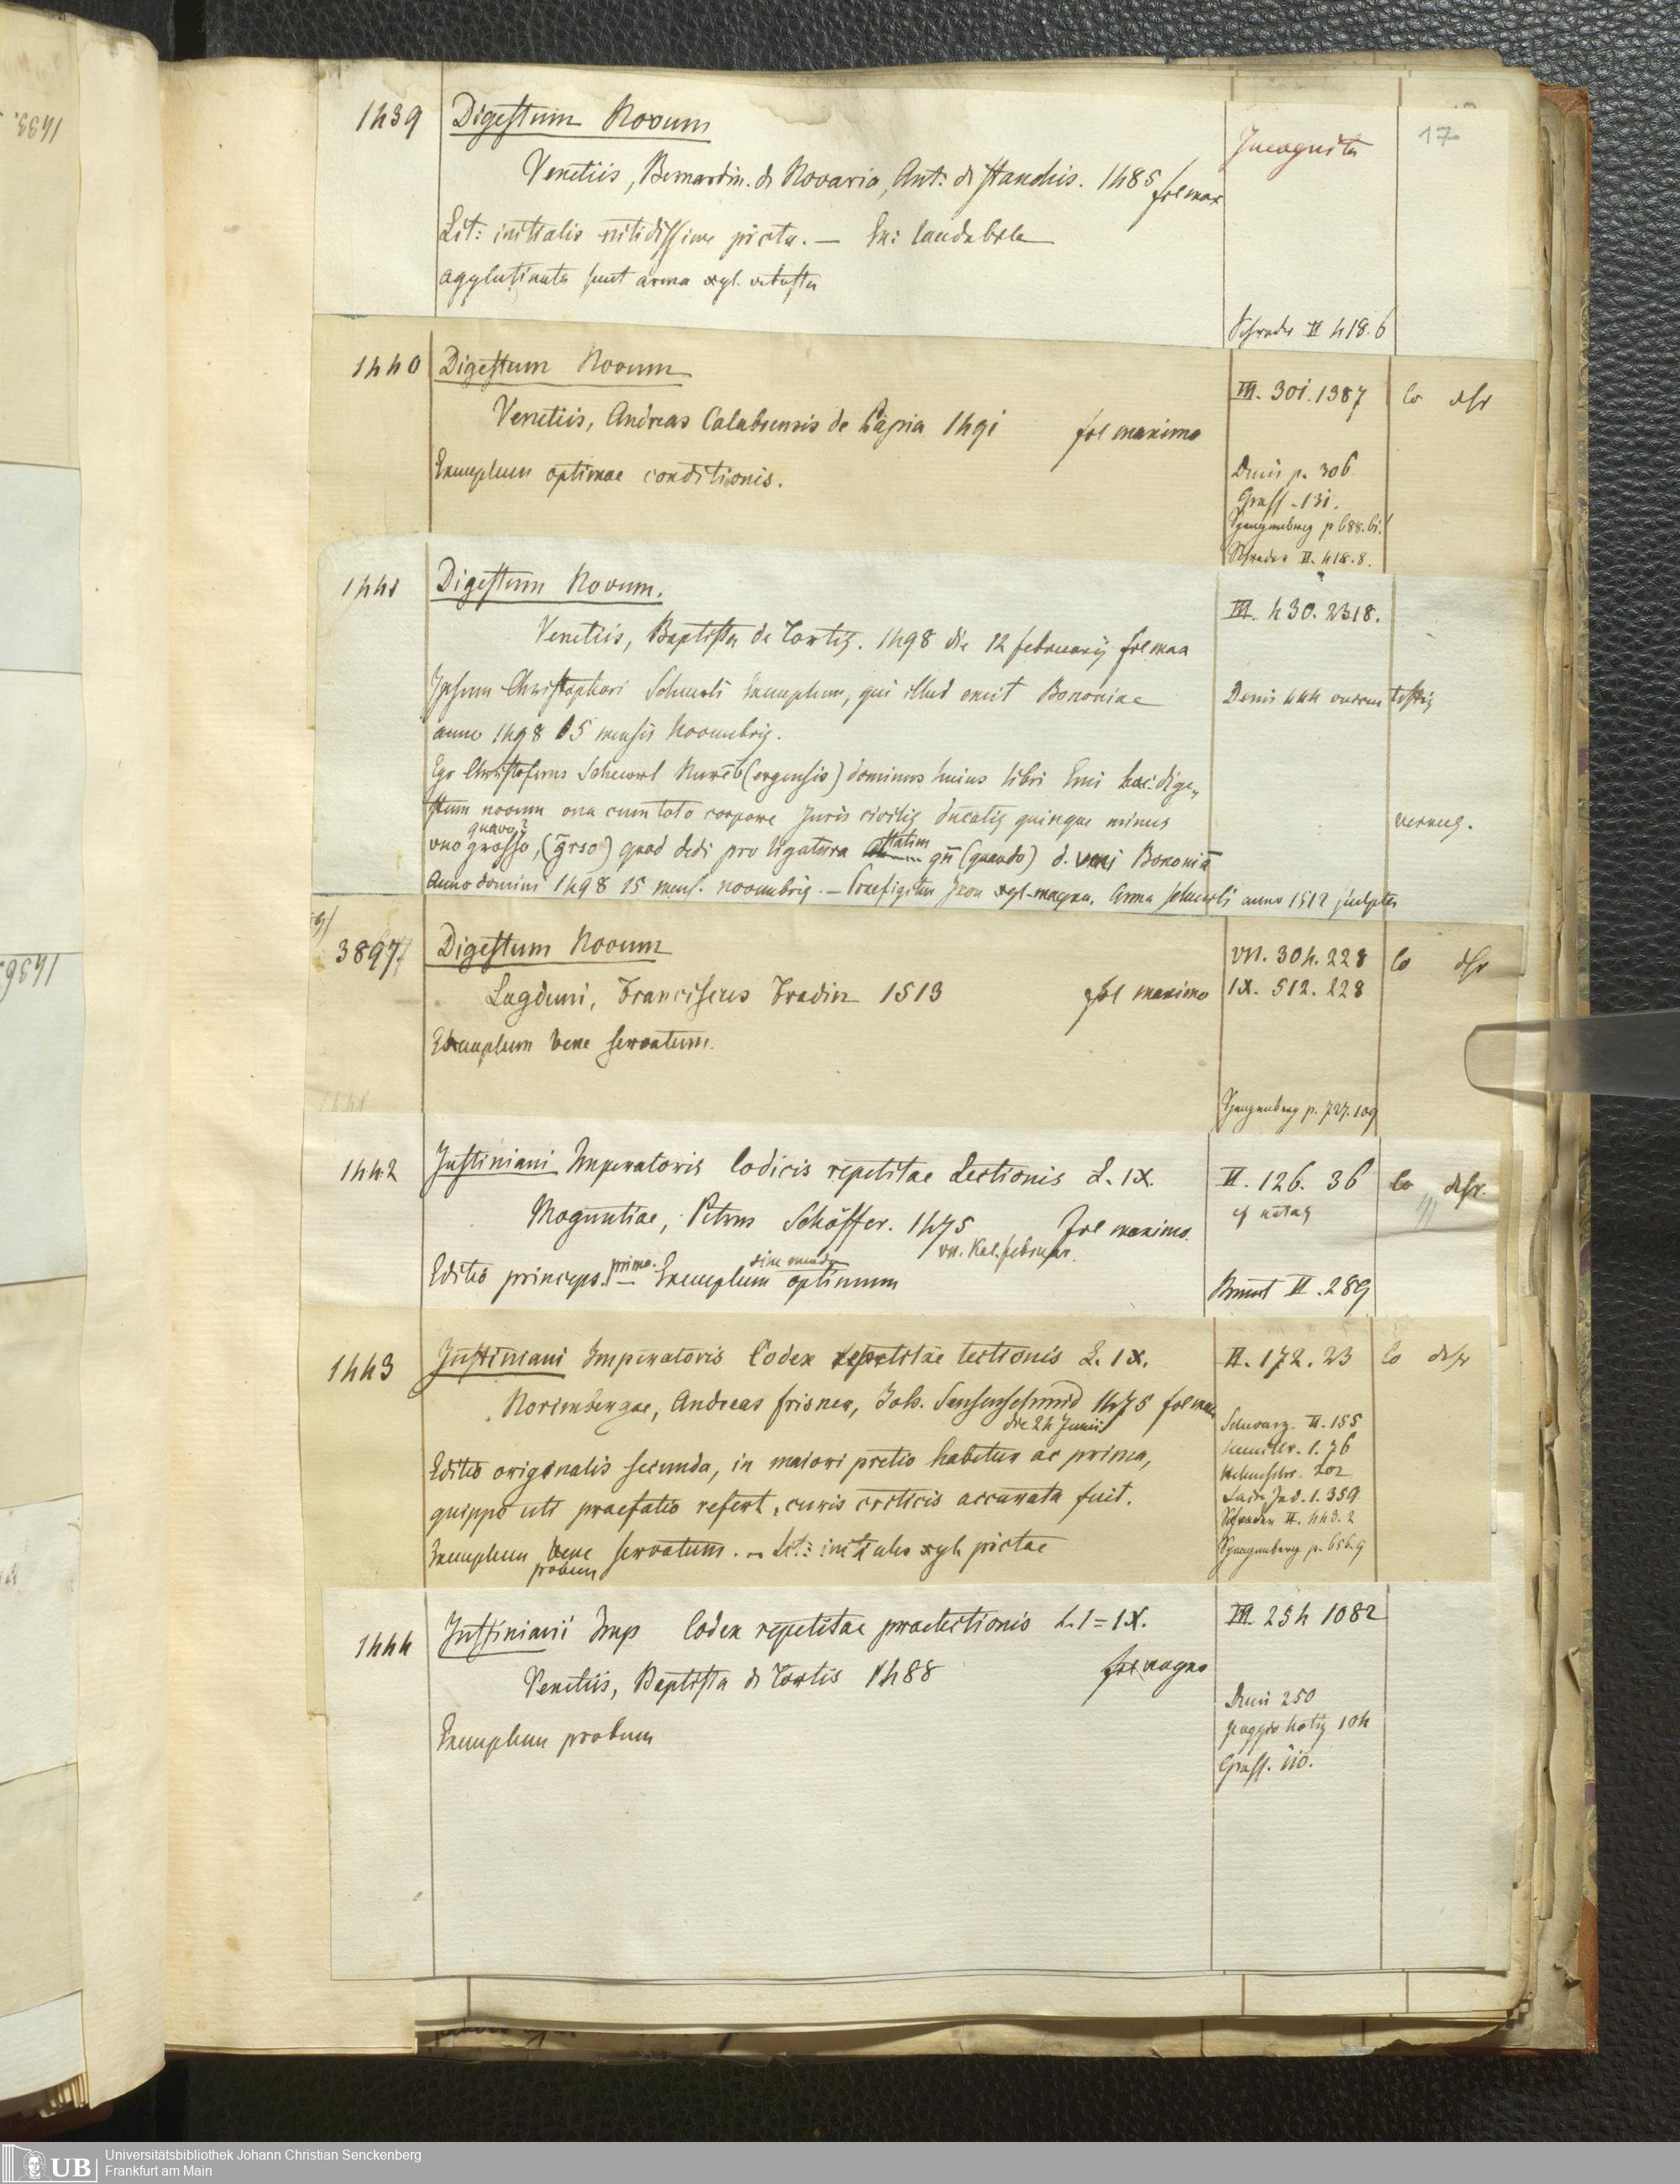 17
1439 Digestum Novum
Incognita
Venetiis, Bernardin. de Novaria, Ant: de Stanchis. 1485 fol max
Lit: initialis nitidissime picta. — Ex: laudabile
agglutinata sunt arma xyl. vetusta
Schrader II 418. 6
1440 Digestum Novum
III. 301. 1387
Co
Venetiis, Andreas Calabrensis de Papia 1491 fol maximo
Exemplum optimae conditionis.
Denis p. 306
Grass - 131.
Spangenberg p 688. 61.
Schrader II. 418. 8.
1441 Digestum Novum.
III. 430. 2318.
Venetiis, Baptista de Tortis. 1498 die 12 februarij fol max
Ipsum Christophori Scheurli Exemplum, qui illud emit Bononiae
Denis 444
anno 1498 15 mensis Novembris.
Ego Christoferus Scheurl Nureb(ergensis) dominus huius libri Emi hoc dige„
stum novum una cum toto corpore Juris civilis ducatis quinque minus
uno grosso, (grso) quod dedi pro ligatura statim qn (quando) d. veni Bononia
Anno domini 1498 15 mens. novembris. — Praefigitur Icon xyl. magna. Arma Scheurli anno 1512 sculpta
3897 Digestum Novum
VII. 304. 228
Co
IX. 512. 228
Lugduni, Franciscus Fradin 1513 fol maximo
Exemplum bene servatum.
Spangenberg p. 727. 109
1442 Justiniani Imperatoris Codicis repetitae Lectionis L. IX.
II. 126. 36
Co
Moguntiae, Petrus Schöffer. 1475 fol maximo.
VII. Kal. februar.
Editio princeps. prima. — Exemplum optimum
Brunet II. 289
1443 Justiniani Imperatoris Codex repetitae lectionis L. IX.
II. 172. 23
Co
Norimbergae, Andreas Frisner, Joh. Sensenschmid 1475 fol max
die 24 Junii
Editio originalis secunda, in maiori pretio habetur ac prima,
quippe uti praefatio refert, curis criticis accurata fuit.
Exemplum bene servatum. — Lit: initiales xyl. pictae
probum
Schwarz. II. 155
Laire Ind. I. 359
Schrader II. 443. 2
Spangenberg p. 656. 9
1444 Justiniani Imp Codex repetitae praelectionis L. I = IX.
III. 254 1082
Venetiis, Baptista de Tortis 1488 fol magno
Exemplum probum
Denis 250
Grass. 110.
Universitätsbibliothek Johann Christian Senckenberg
Frankfurt am Main
UB